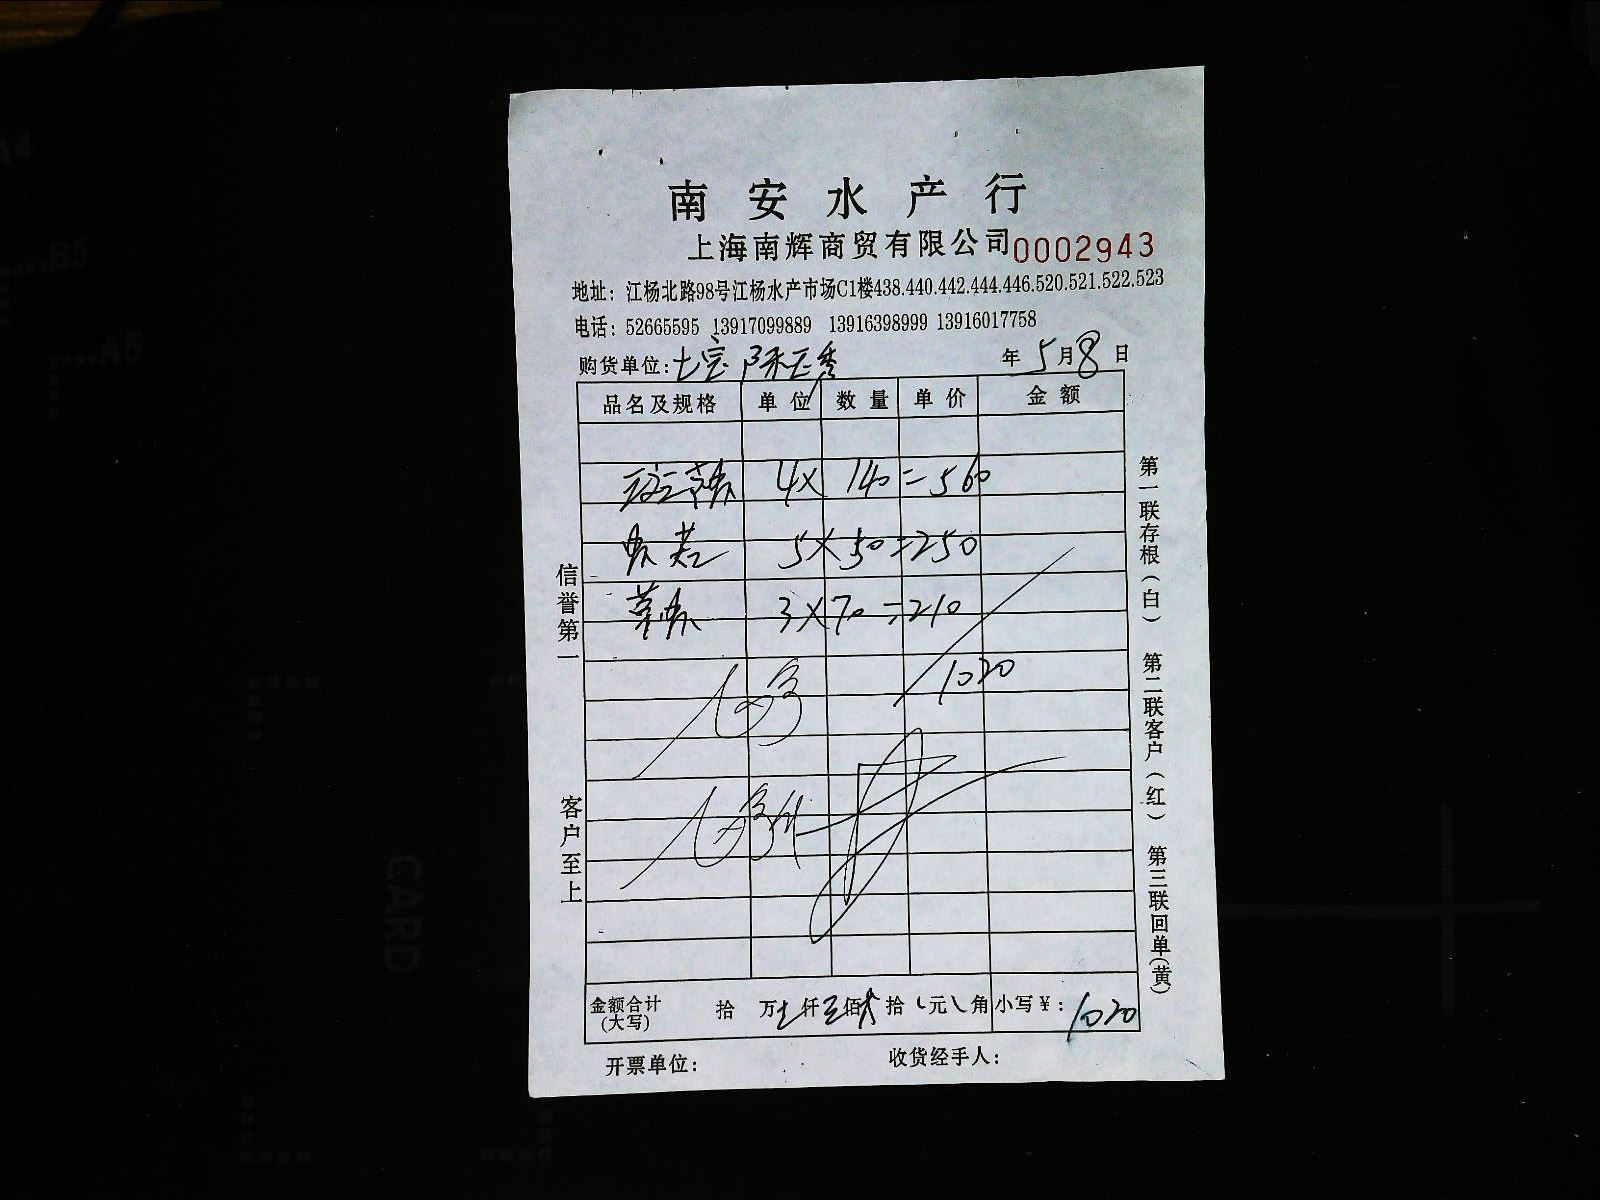 南安水产行
上海南辉商贸有限公司 0002943
地址：江杨北路98号江杨水产市场C1楼438.440.442.444.446.520.521.522.523
电话：52665595 13917099889 13916398999 13916017758
购货单位： 年 5 月 8 日
品名及规格 单位 数量 单价 金额
4× 140 = 560
5×50=250
3×70=210
1020
金额合计(大写) 拾 万 仟 佰 拾 元 角 小写¥：1020
开票单位： 收货经手人：
信誉第一
客户至上
第一联存根(白) 第二联客户(红) 第三联回单(黄)
A4
B5
A5
CARD